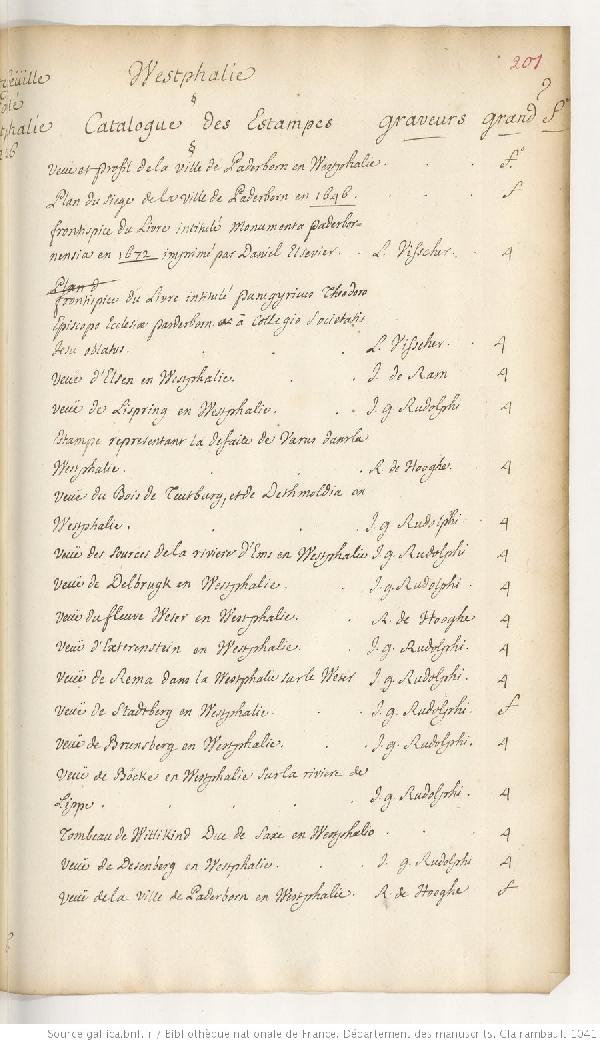 201
Westphalie
Catalogue des Estampes graveurs grand
Veuë et profil de la ville de Paderborn en Westphalie. f.º
Plan du siege de la ville de Paderborn en 1646. f
frontispice du Livre intitulé Monumenta paderbor-
nensia en 1672 imprimé par Daniel Elsevier. L. Visscher. 4
Plan d
frontispice du Livre intitulé panegyricus Theodoro
Episcopo Ecclesiæ paderborn. a Collegio Societatis
Jesu oblatus. L. Visscher. 4
Veuë d'Elsen en Westphalie. J. de Ram 4
Veuë de Lispring en Westphalie. J. g Rudolphi 4
Estampe representant la defaite de Varus dans la
Westphalie. R. de Hooghe. 4
Veuë du Bois de Teutburg, et de Dethmoldia en
Westphalie. J. g Rudolphi 4
Veuë des sources de la riviere d'Ems en Westphalie J. g Rudolphi 4
Veuë de Delbrugk en Westphalie. J. g Rudolphi. 4
Veuë du fleuve Weser en Westphalie. R. de Hooghe 4
Veuë d'Exterenstein en Westphalie. J. g. Rudolphi. 4
Veuë de Rema dans la Westphalie sur le Weser J. g Rudolphi. 4
Veuë de Stadtberg en Westphalie. J. g Rudolphi. f
Veuë de Brunsberg en Westphalie. J. g. Rudolphi. 4
Veuë de Böcke en Westphalie sur la riviere de
Lippe. J. g Rudolphi. 4
Tombeau de Witikind Duc de Saxe en Westphalie 4
Veuë de Desenberg en Westphalie. J. g Rudolphi 4
Veuë de la ville de Paderborn en Westphalie. R. de Hooghe f
Source gallica.bnf.fr / Bibliothèque nationale de France. Département des manuscrits. Clairambault 1041